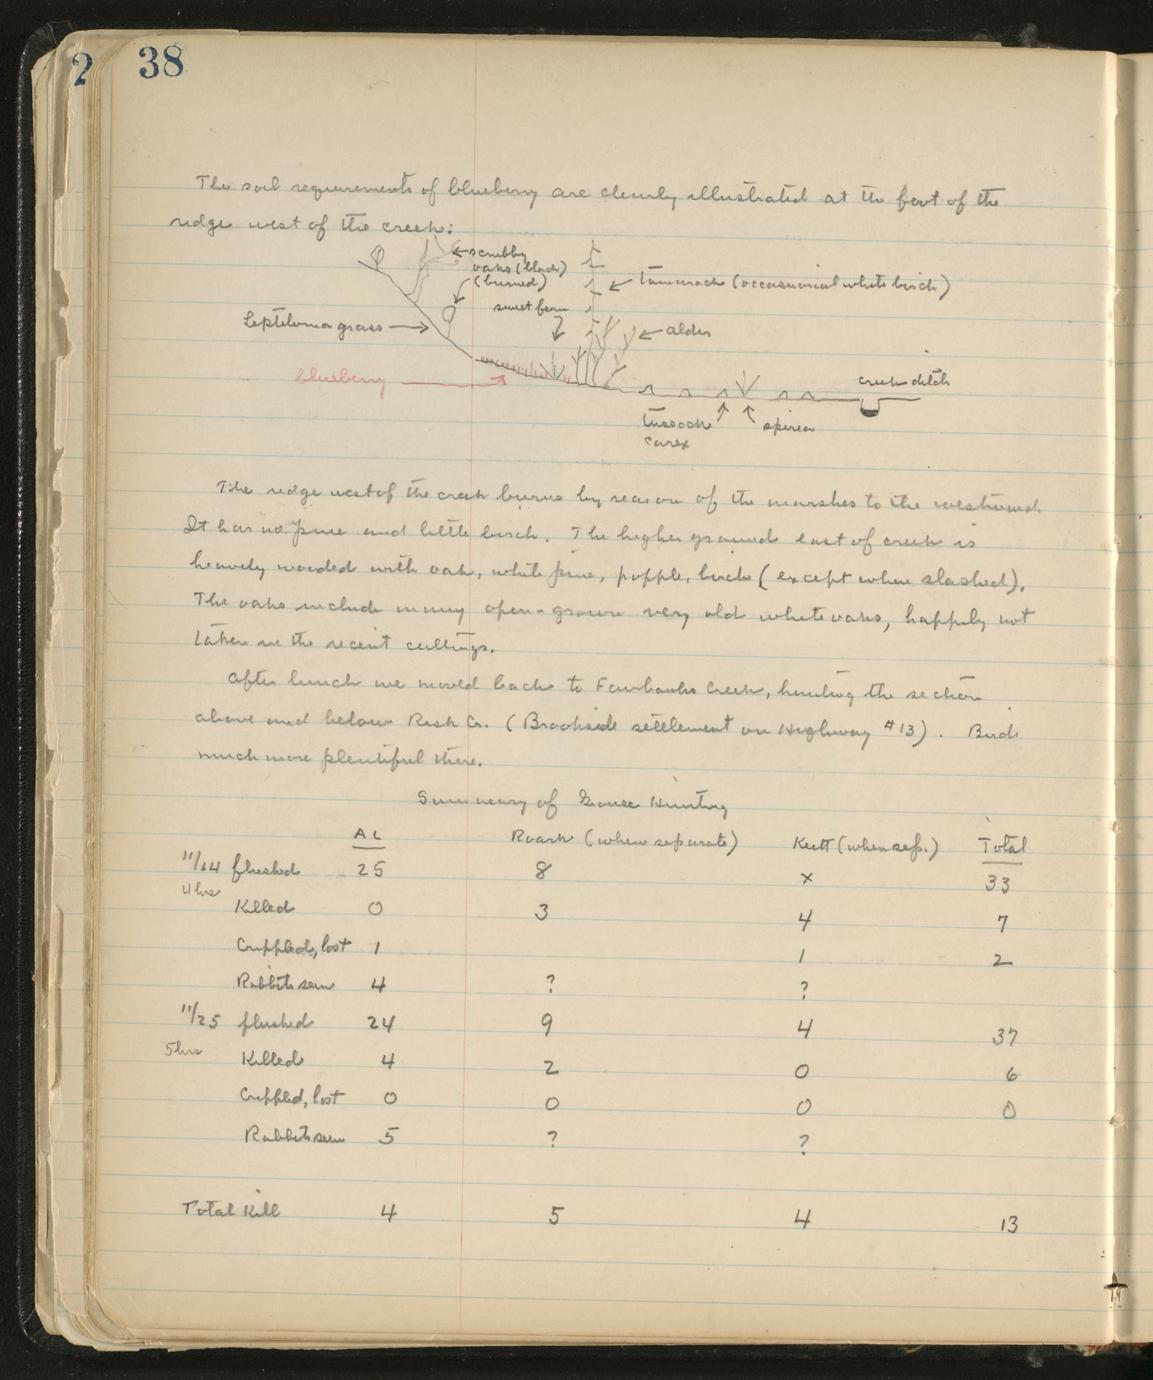 2 38
The soil requirements of blueberry are clearly illustrated at the foot of the
ridge west of the creek:
scrubby
oaks (black)
(burned)
tamarack (occasional white birch)
sweet fern
Leptiloma grass
alder
blueberry
creek ditch
tussock
carex
spirea
The ridge west of the creek burns by reason of the marshes to the westward.
It has no pine and little birch. The higher ground east of creek is
heavily wooded with oak, white pine, popple, birch (except where slashed).
The oaks include many open-grown very old white oaks, happily not
taken in the recent cuttings.
After lunch we moved back to Fairbanks Creek, hunting the section
above and below Risk Cr. (Brookside settlement on Highway #13). Birds
much more plentiful there.
Summary of Grouse Hunting
AL Roark (when separate) Kutt (when sep.) Total
11/24 flushed 25 8 x 33
4 hrs
Killed 0 3 4 7
Crippled, lost 1 1 2
Rabbits seen 4 ? ?
11/25 flushed 24 9 4 37
5 hrs
Killed 4 2 0 6
Crippled, lost 0 0 0 0
Rabbits seen 5 ? ?
Total Kill 4 5 4 13